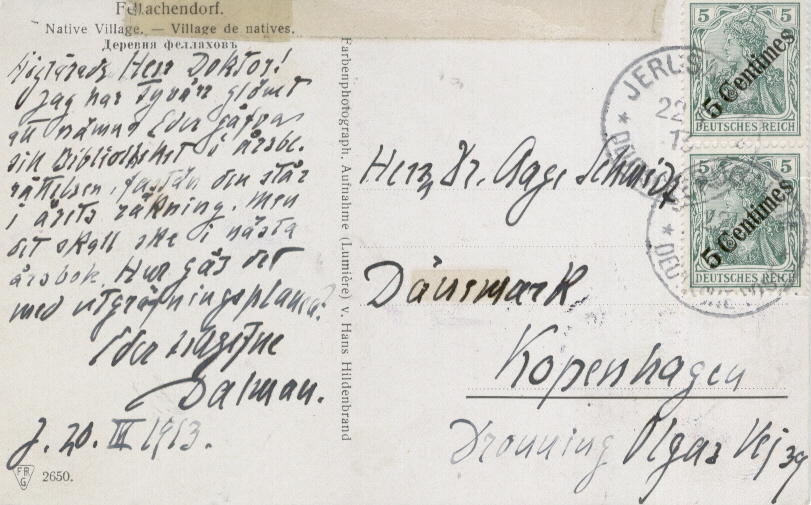 Fellachendorf.
Native Village. — Village de natives.
Деревня феллаховъ
Högtärade Herr Doktor!
Jag har tyvärr glömt
att nämna Eder gåfva
till biblioteket i årsbe-
rättelsen, fastän den står
i årets räkning. Men
det skall ske i nästa
årsbok. Hur går det
med utgräfningsplanen?
Eder tillgifne
Dalman.
J. 20. III 1913.
2650.
Farbenphotograph. Aufnahme (Lumière) v. Hans Hildenbrand
Herrn Dr. Aage Schmidt
Dänemark
Kopenhagen
Dronning Olgas Vej 39
5 5
5 Centimes
DEUTSCHES REICH
5 5
5 Centimes
DEUTSCHES REICH
JERUSA
22